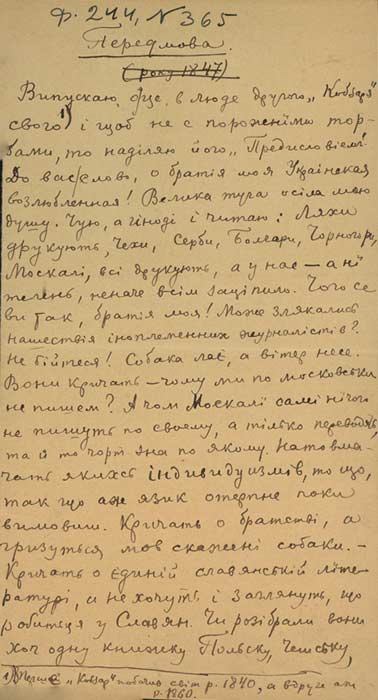 Ф. 244, № 365
Передмова.
(року 1847)
Випускаю оце в люде другого „Кобзаря"
свого 1) і щоб не с порожніми тор-
бами, то наділяю його „Предисловіем".
До вас слово, о братія моя Українская
возлюбленная! Велика туга осіла мою
душу. Чую, а іноді і читаю: Ляхи
друкують, Чехи, Серби, Болгари, Чорногори,
Москалі, всі друкують, а у нас — а ні
телень, неначе всім заціпило. Чого се
ви так, братія моя! Може злякались
нашествія іноплеменних журналістів?
Не бійтеся! Собака лає, а вітер несе.
Вони кричать — чому ми по московськи
не пишем? А чом Москалі самі нічого
не пишуть по своєму, а тілько переводять,
та й то чорт зна по якому. Натовма-
чать якихсь індивидуизмів, то що,
так що аж язик отерпне поки
вимовиш. Кричать о братстві, а
гризуться мов скажені собаки. —
Кричать о єдиній славянській літе-
ратурі, а не хочуть і заглянуть, що
робиться у Славян. Чи розібрали вони
хоч одну книжку Польску, Чешську,
1) Перший „Кобзар" побачив світ р. 1840, а вдруге аж
р. 1860.